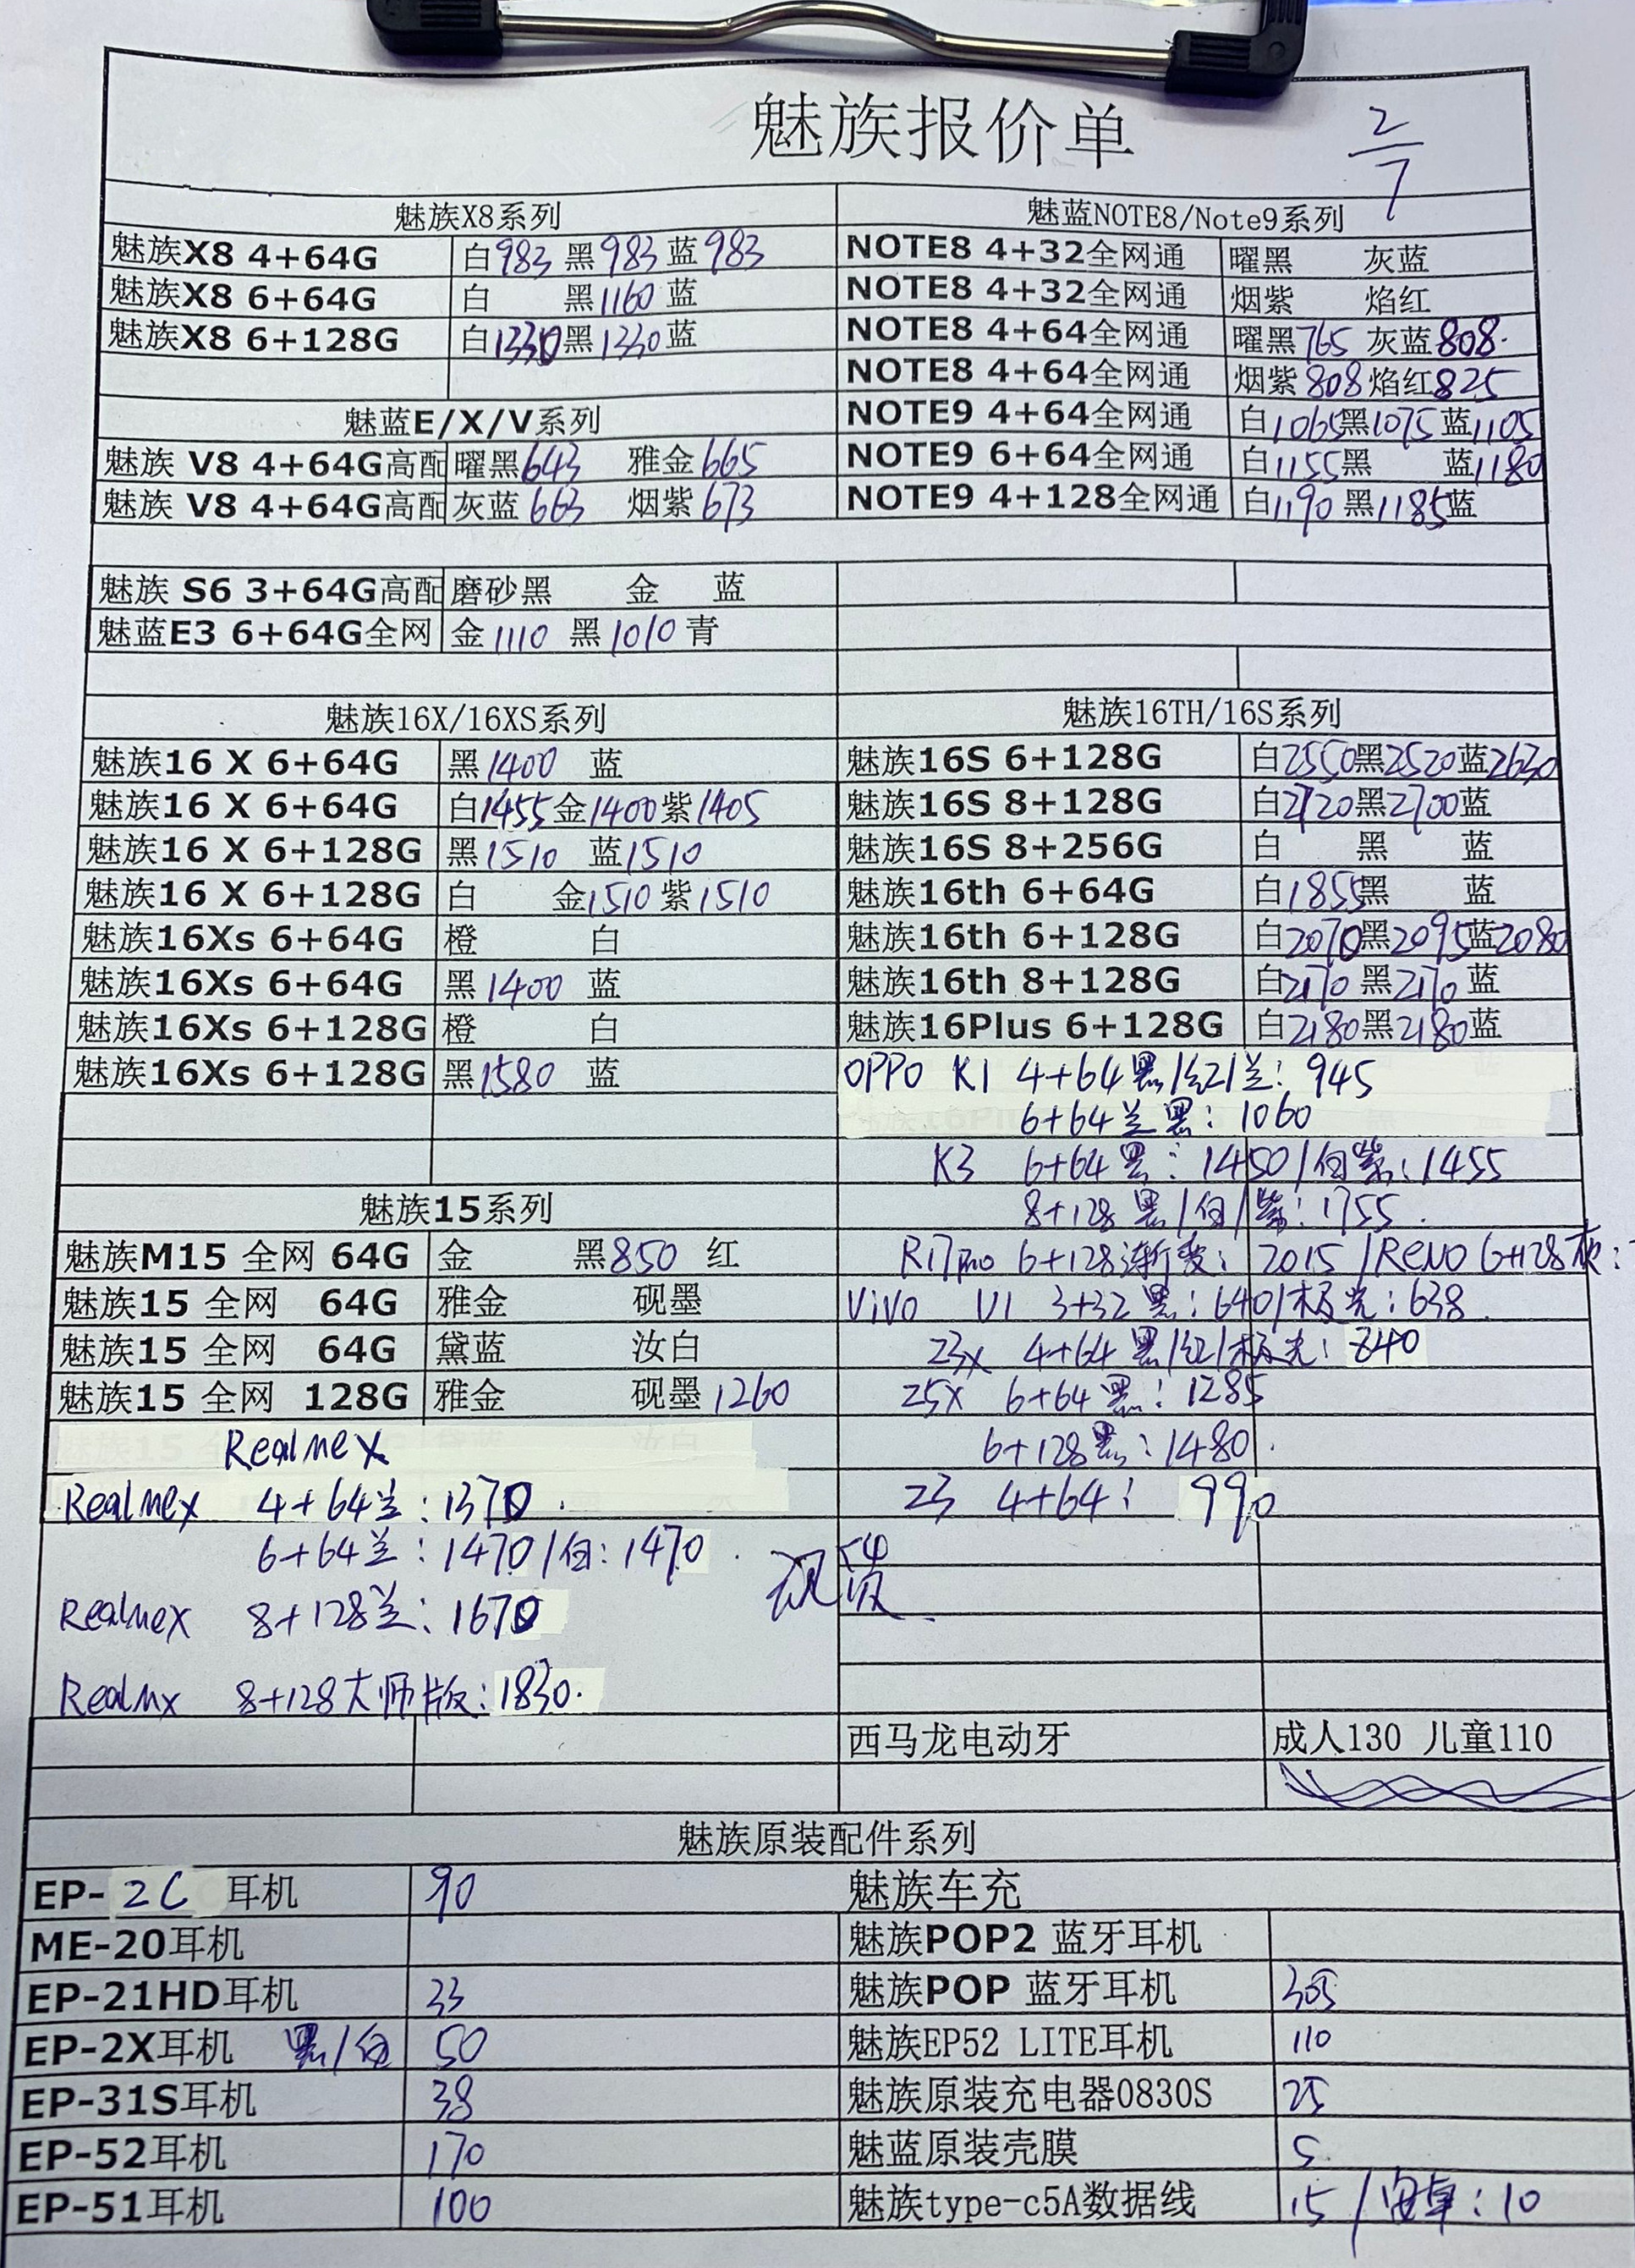 魅族报价单
2/7
魅族X8系列
魅族X8 4+64G 白983 黑983 蓝983
魅族X8 6+64G 白 黑1160 蓝
魅族X8 6+128G 白1330 黑1330 蓝
魅蓝E/X/V系列
魅族 V8 4+64G高配 曜黑643 雅金665
魅族 V8 4+64G高配 灰蓝663 烟紫673
魅族 S6 3+64G高配 磨砂黑 金 蓝
魅蓝E3 6+64G全网 金1110 黑1010 青
魅蓝NOTE8/Note9系列
NOTE8 4+32全网通 曜黑 灰蓝
NOTE8 4+32全网通 烟紫 焰红
NOTE8 4+64全网通 曜黑765 灰蓝808.
NOTE8 4+64全网通 烟紫808 焰红825
NOTE9 4+64全网通 白1065黑1075 蓝1105
NOTE9 6+64全网通 白1155黑 蓝1180
NOTE9 4+128全网通 白1190 黑1185蓝
魅族16X/16XS系列
魅族16 X 6+64G 黑1400 蓝
魅族16 X 6+64G 白1455金1400紫1405
魅族16 X 6+128G 黑1510 蓝1510
魅族16 X 6+128G 白 金1510 紫1510
魅族16Xs 6+64G 橙 白
魅族16Xs 6+64G 黑1400 蓝
魅族16Xs 6+128G 橙 白
魅族16Xs 6+128G 黑1580 蓝
魅族16TH/16S系列
魅族16S 6+128G 白2550黑2520蓝2630
魅族16S 8+128G 白2720黑2700蓝
魅族16S 8+256G 白 黑 蓝
魅族16th 6+64G 白1855黑 蓝
魅族16th 6+128G 白2070黑2095蓝2080
魅族16th 8+128G 白2170 黑2170 蓝
魅族16Plus 6+128G 白2180黑2180蓝
OPPO K1 4+64黑/红/兰: 945
6+64兰黑: 1060
K3 6+64黑: 1450/白紫: 1455
8+128黑/白/紫: 1755.
R17pro 6+128渐变: 2015 /Reno 6+128灰:
ViVo U1 3+32黑: 640/极光: 638.
Z3x 4+64黑/红/极光: 840
Z5x 6+64黑: 1285
6+128黑: 1480.
Z3 4+64: 990
魅族15系列
魅族M15 全网 64G 金 黑850 红
魅族15 全网 64G 雅金 砚墨
魅族15 全网 64G 黛蓝 汝白
魅族15 全网 128G 雅金 砚墨1260
RealmeX
RealmeX 4+64兰: 1370.
6+64兰: 1470/白: 1470.
RealmeX 8+128兰: 1670
Realmx 8+128大师版: 1830.
现货
西马龙电动牙 成人130 儿童110
魅族原装配件系列
EP-2C 耳机 90 魅族车充
ME-20耳机 魅族POP2 蓝牙耳机
EP-21HD耳机 33 魅族POP 蓝牙耳机 305
EP-2X耳机 黑/白 50 魅族EP52 LITE耳机 110
EP-31S耳机 38 魅族原装充电器0830S 25
EP-52耳机 170 魅蓝原装壳膜 5
EP-51耳机 100 魅族type-c5A数据线 15/安卓: 10